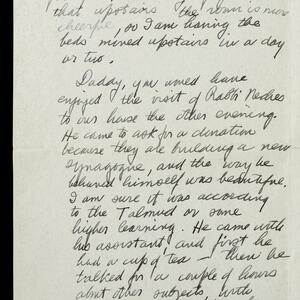 that upstairs the room is more
cheerful, so I am having the
beds moved upstairs in a day
or two.
Daddy, you would have
enjoyed the visit of Rabbi
to our house the other evening.
He came to ask for a donation
because they are building a new
synagogue, and the way he
behaved himself was beautiful.
I am sure it was according
to the Talmud or some
higher learning. He came with
his assistant and first he
had a cup of tea — then he
talked for a couple of hours
about other subjects with